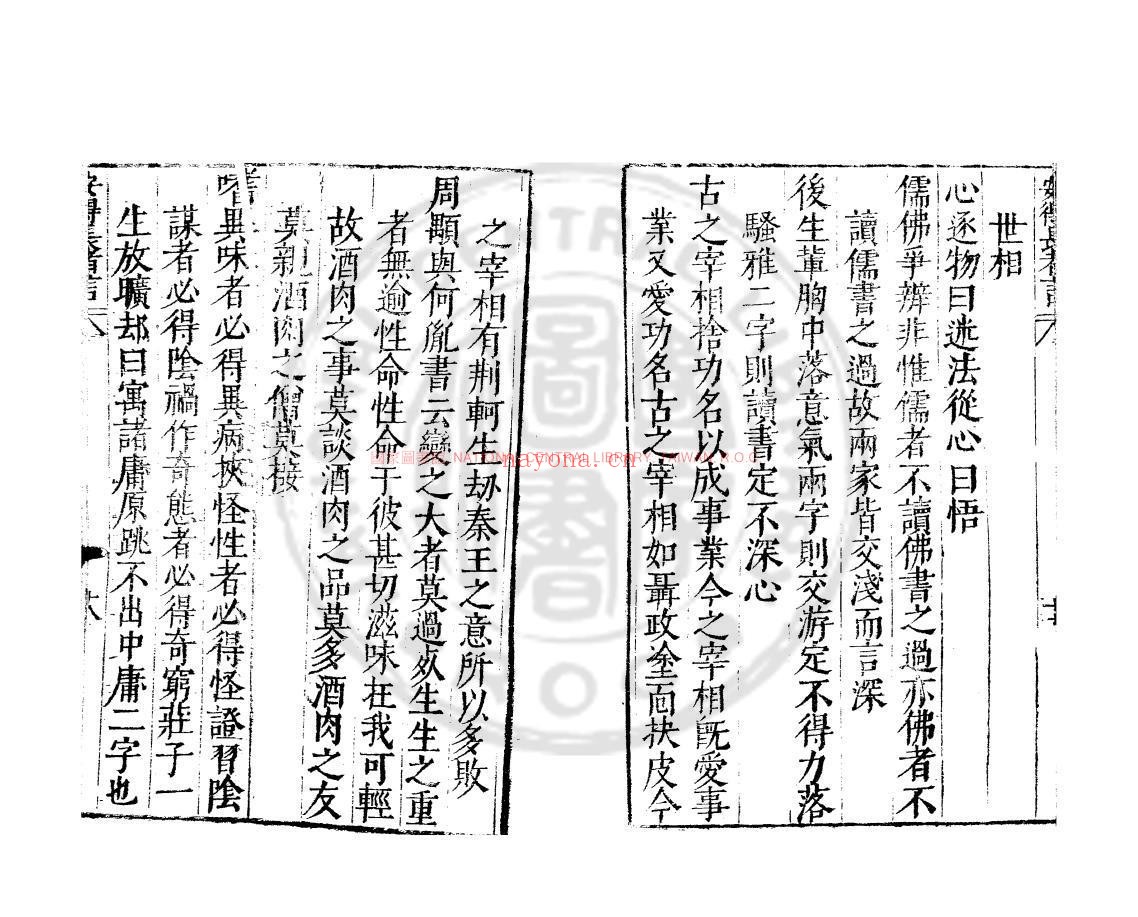 世相
心逐物曰迷法從心曰悟
儒佛爭辨非惟儒者不讀佛書之過亦佛者不
讀儒書之過故兩家皆交淺而言深
後生輩胸中落意氣兩字則交游定不得力落
騷雅二字則讀書定不深心
古之宰相捨功名以成事業今之宰相旣愛事
業又愛功名古之宰相如聶政塗面抉皮今
之宰相有荆軻生刼秦王之意所以多敗
周顒與何胤書云變之大者莫過死生生之重
者無逾性命性命于彼甚切滋味在我可輕
故酒肉之事莫談酒肉之品莫多酒肉之友
莫親酒肉之僧莫接
嗜異味者必得異病挾怪性者必得怪證習陰
謀者必得陰禍作奇態者必得奇窮莊子一
生放曠却曰寓諸庸原跳不出中庸二字也
安得長者言
國家圖書館 NATIONAL CENTRAL LIBRARY, TAIWAN, R.O.C
nayona.cn